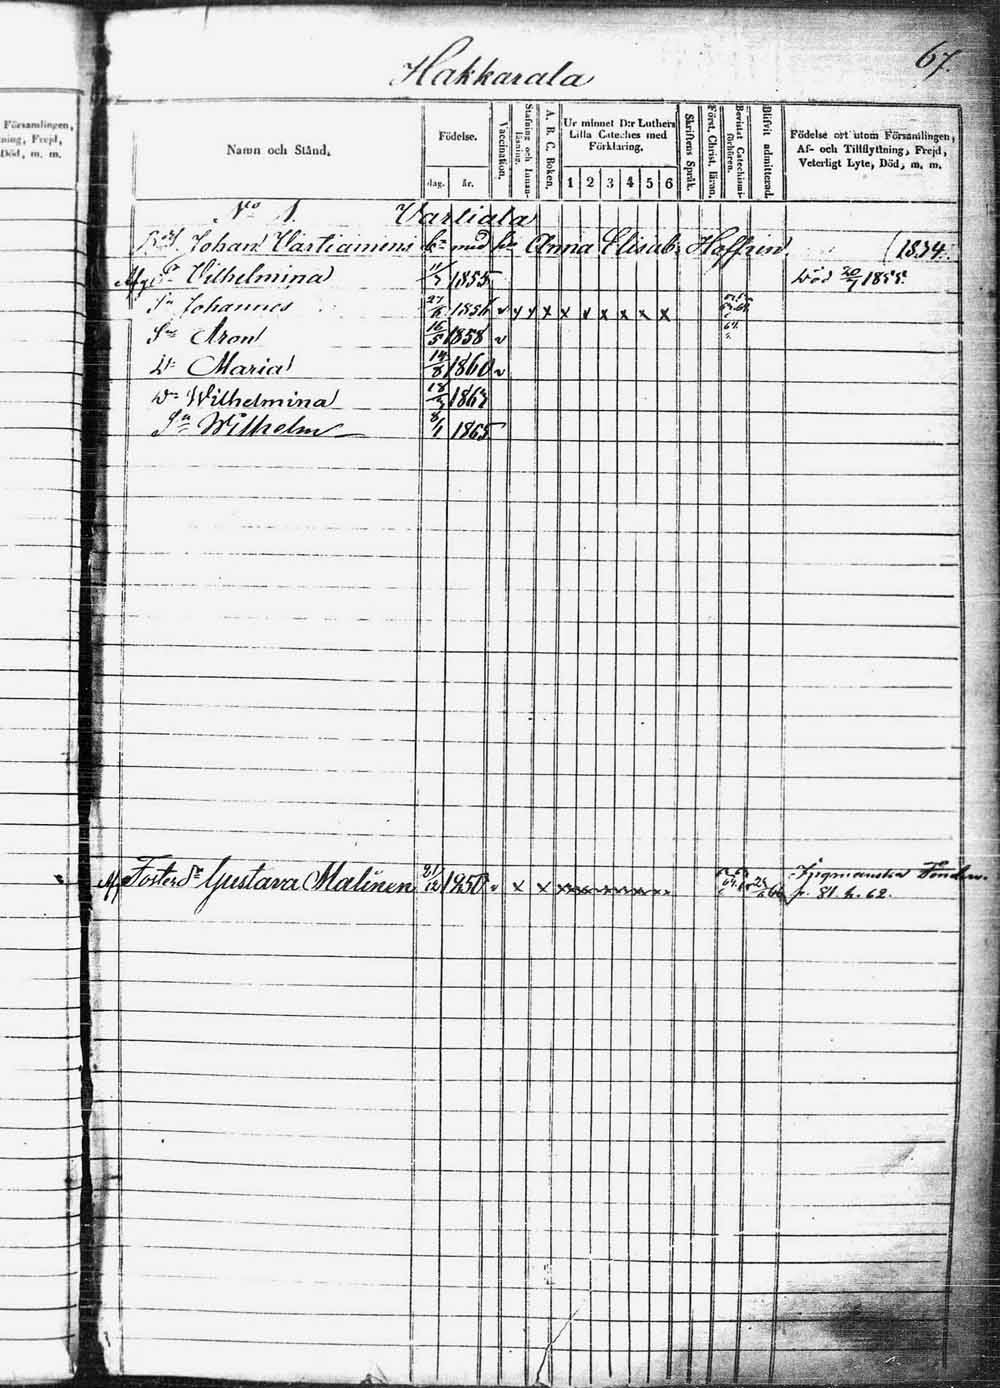 67.
Hakkarala
Församlingen,
ning, Frejd,
Död, m. m.
Namn och Stånd.
Födelse.
dag. år.
Vaccination.
Stafning och Innan-läsning.
A. B. C. Boken.
Ur minnet D:r Luthers
Lilla Cateches med
Förklaring.
1 2 3 4 5 6
Skriftens Språk.
Förstå Christ. läran.
Bevistat Catechismi-förhören.
Blifvit admitterad.
Födelse ort utom Församlingen,
Af- och Tillflyttning, Frejd,
Veterligt Lyte, Död, m. m.
No 1. Vartiala
Johan Vartiainens med Anna Elisab: Hoffrén (1834.
Vilhelmina 1855 Död 20/7 1855.
Johannes 27/6 1856 v y y x x x x x x x
Sn Aron 16/5 1858 v 64.
Dr Maria 14/8 1860 v
Dr Wilhelmina 18
Sn Wilhelm 8/1 1865
Foster Dr Gustava Malinen 21/12 1850 v x x x x x x x x
p. 81. h. 62.